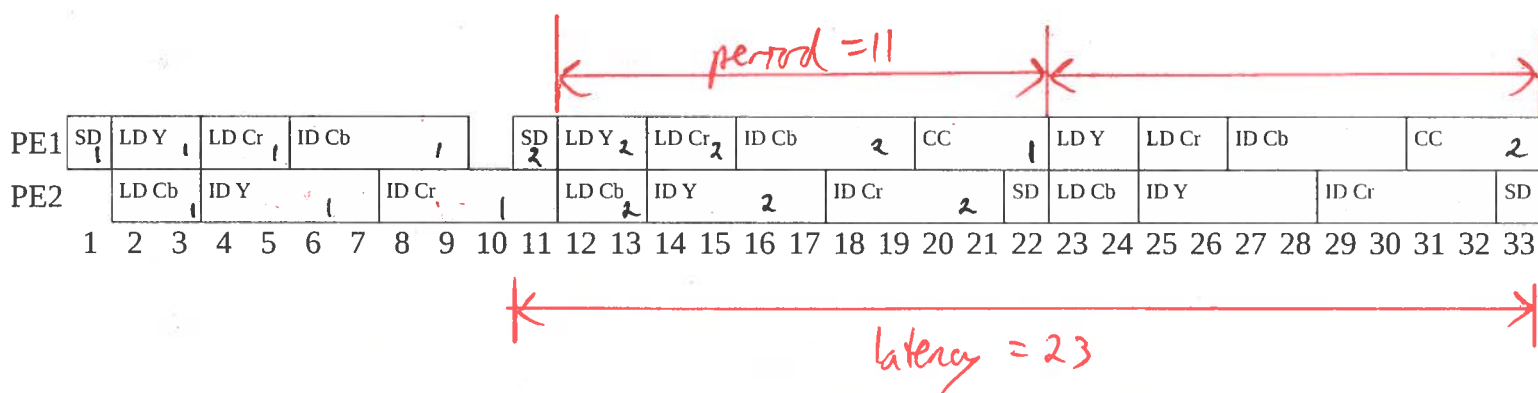 period = 11
PE1 SD 1 LD Y 1 LD Cr 1 ID Cb 1 SD 2 LD Y 2 LD Cr 2 ID Cb 2 CC 1 LD Y LD Cr ID Cb CC 2
PE2 LD Cb 1 ID Y 1 ID Cr 1 LD Cb 2 ID Y 2 ID Cr 2 SD LD Cb ID Y ID Cr SD
1 2 3 4 5 6 7 8 9 10 11 12 13 14 15 16 17 18 19 20 21 22 23 24 25 26 27 28 29 30 31 32 33
latency = 23